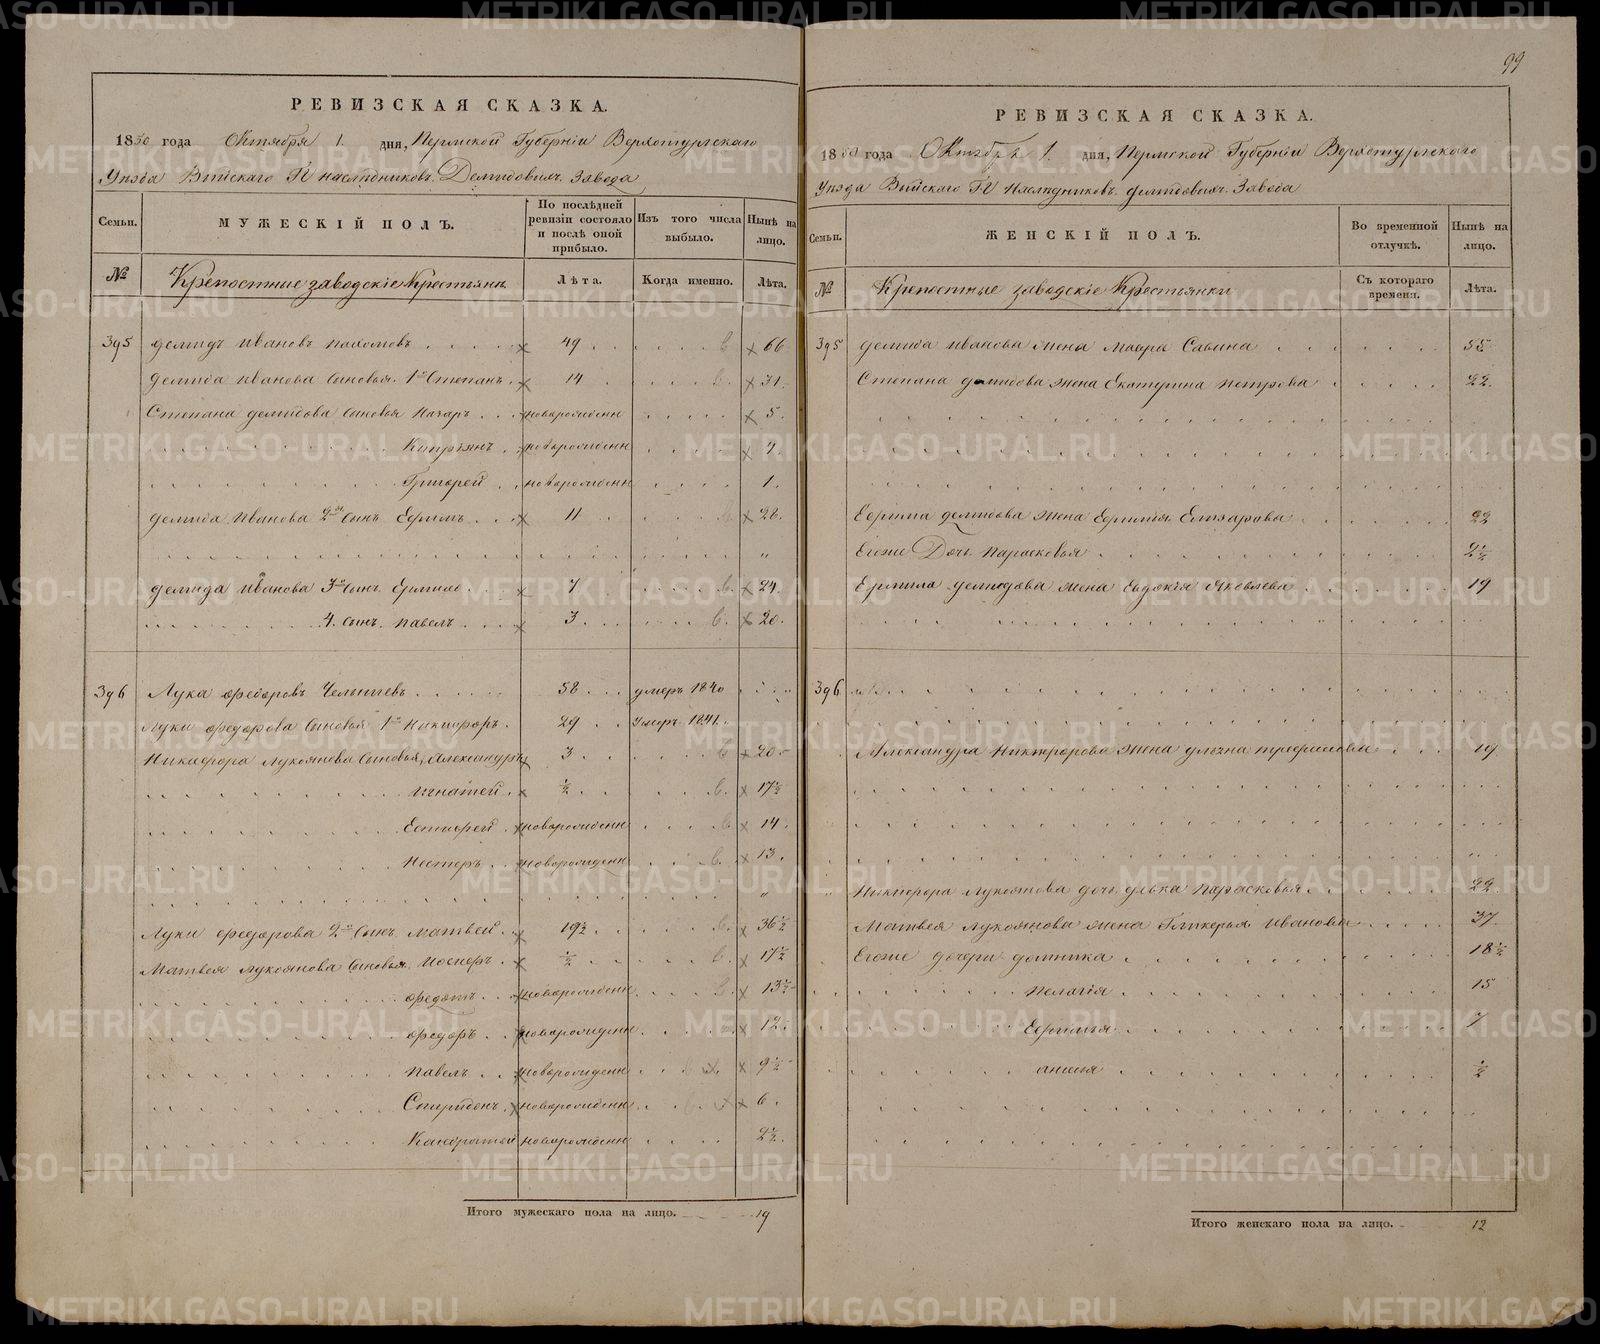 99
РЕВИЗСКАЯ СКАЗКА.
1850 года Октября 1. дня, Пермской Губерніи Верхотурскаго
Уѣзда Выйскаго ГГ наслѣдниковъ Демидовыхъ Завода
Семьи. МУЖЕСКІЙ ПОЛЪ. По послѣдней ревизіи состояло и послѣ оной прибыло. Изъ того числа выбыло. Нынѣ на лицо.
№ Крѣпостные заводскіе Крестьянѣ Лѣта. Когда именно. Лѣта.
395 Демидъ Ивановъ Пахомовъ 49 66
Демида Иванова Сыновья 1й Степанъ 14 31
Степана Демидова Сыновья Назаръ новорожденн 5
Кипріянъ новорожденн 4
Григорей новорожденн 1
Демида Иванова 2й Сынъ Ефимъ 11 28
Демида Иванова 3й Сынъ Ермило 7 24
4. Сынъ Павелъ 3 20
396 Лука Федоровъ Челышевъ 58 умеръ 1840
Луки Федорова Сыновья 1й Никифоръ 29 умеръ 1841
Никифора Лукоянова Сыновья, Александръ 3 20
Игнатей ½ 17½
Естифей новорожденн 14
Нестеръ новорожденн 13
Луки Федорова 2й Сынъ Матвей 19½ 36½
Матвея Лукоянова Сыновья Иосифъ ½ 17½
Федотъ новорожденн 13½
Федоръ новорожденн 12
Павелъ новорожденн 9½
Спиридонъ новорожденн 6
Кондратей новорожденн 2½
Итого мужескаго пола на лицо. 19
РЕВИЗСКАЯ СКАЗКА.
1850 года Октября 1. дня, Пермской Губерніи Верхотурскаго
Уѣзда Выйскаго ГГ Наслѣдниковъ Демидовыхъ Завода
Семьи. ЖЕНСКІЙ ПОЛЪ. Во временной отлучкѣ. Нынѣ на лицо.
№ Крѣпостные заводскіе Крестьянки Съ котораго времени. Лѣта.
395 Демида Иванова жена Мавра Савина 55
Степана Демидова жена Екатерина Петрова 22
Ефима Демидова жена Ефимія Елизарова 22
Егоже Дочь Парасковья 2½
Ермила Демидова жена Евдокія Яковлева 19
396
Александра Никифорова жена Улѣяна Трефилова 19
Никифора Лукоянова дочь девка Парасковья 22
Матвея Лукоянова жена Гликерья Иванова 37
Егоже дочери Домника 18½
Пелагія 15
Ефимія 7
Анисья ½
Итого женскаго пола на лицо. 12
METRIKI.GASO-URAL.RU